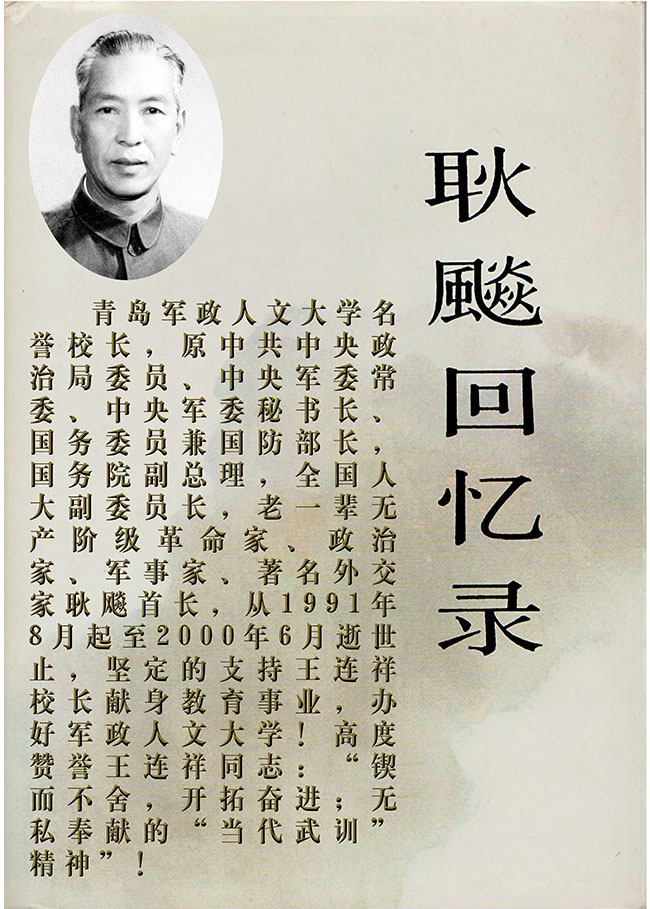 耿飚回忆录
青岛军政人文大学名
誉校长，原中共中央政
治局委员、中央军委常
委、中央军委秘书长、
国务委员兼国防部长，
国务院副总理，全国人
大副委员长，老一辈无
产阶级革命家、政治
家、军事家、著名外交
家耿飚首长，从1991年
8月起至2000年6月逝世
止，坚定的支持王连祥
校长献身教育事业，办
好军政人文大学！高度
赞誉王连祥同志：“锲
而不舍，开拓奋进；无
私奉献的“当代武训”
精神”！